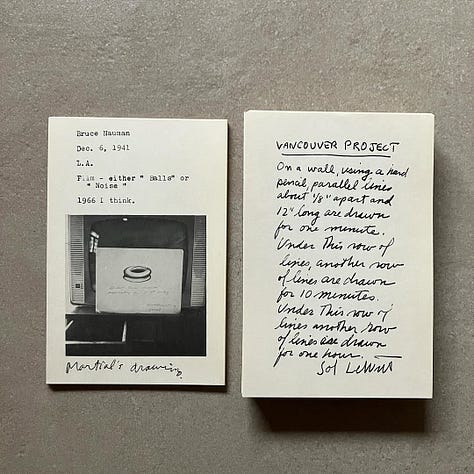 Bruce Nauman
Dec. 6, 1941
L.A.
Film - either "Balls" or
"Noise"
1966 I think.
Martial's drawing.
VANCOUVER PROJECT
On a wall, using a hard
pencil, parallel lines
about 1/8" apart and
12" long are drawn
for one minute.
Under this row of
lines, another row
of lines are drawn
for 10 minutes.
Under this row of
lines another row
of lines are drawn
for one hour.
Sol LeWitt